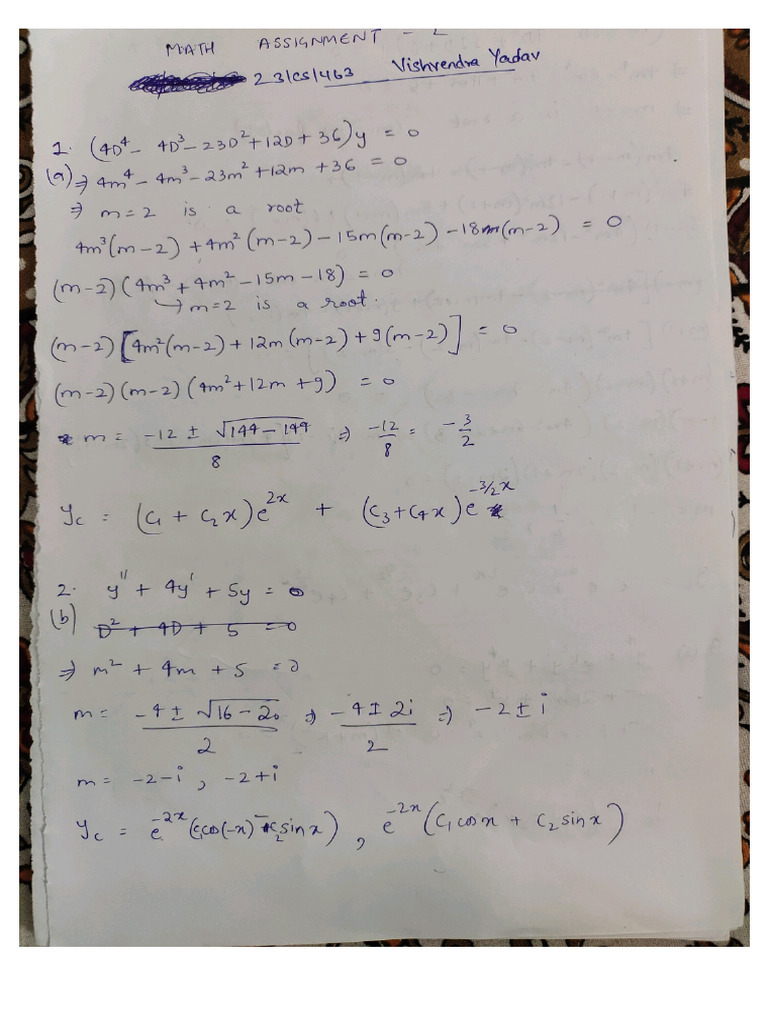 MATH ASSIGNMENT - 2
23/CS/463 Vishvendra Yadav
1. (4D⁴ - 4D³ - 23D² + 12D + 36)y = 0
(a) ⇒ 4m⁴ - 4m³ - 23m² + 12m + 36 = 0
⇒ m = 2 is a root
4m³(m-2) + 4m²(m-2) - 15m(m-2) - 18(m-2) = 0
(m-2)(4m³ + 4m² - 15m - 18) = 0
↳ m=2 is a root.
(m-2)[4m²(m-2) + 12m(m-2) + 9(m-2)] = 0
(m-2)(m-2)(4m² + 12m + 9) = 0
m = (-12 ± √(144 - 144))/8 ⇒ -12/8 = -3/2
y_c = (c₁ + c₂x)e^(2x) + (c₃ + c₄x)e^(-3/2 x)
2. y'' + 4y' + 5y = 0
(b) D² + 4D + 5 = 0
⇒ m² + 4m + 5 = 0
m = (-4 ± √(16 - 20))/2 ⇒ (-4 ± 2i)/2 ⇒ -2 ± i
m = -2-i, -2+i
y_c = e^(-2x)(c₁cos(-x) - c₂sinx), e^(-2x)(c₁cosx + c₂sinx)